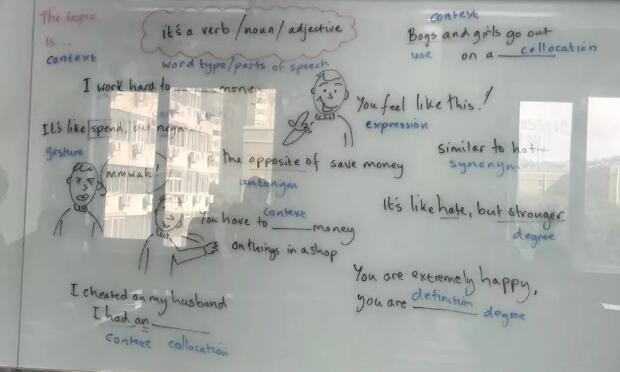 The topic
is ...
context
it's a verb/noun/adjective
word type/parts of speech
context
Boys and girls go out
use
on a ______ collocation
I work hard to ______ money
You feel like this!
expression
It's like spend, but
gesture
mmwah!
the opposite of save money
antonym
similar to hot
synonym
It's like hate, but stronger
degree
context
You have to ______ money
on things in a shop
You are extremely happy,
you are ______ definition
degree
I cheated on my husband
I had an ______
context collocation